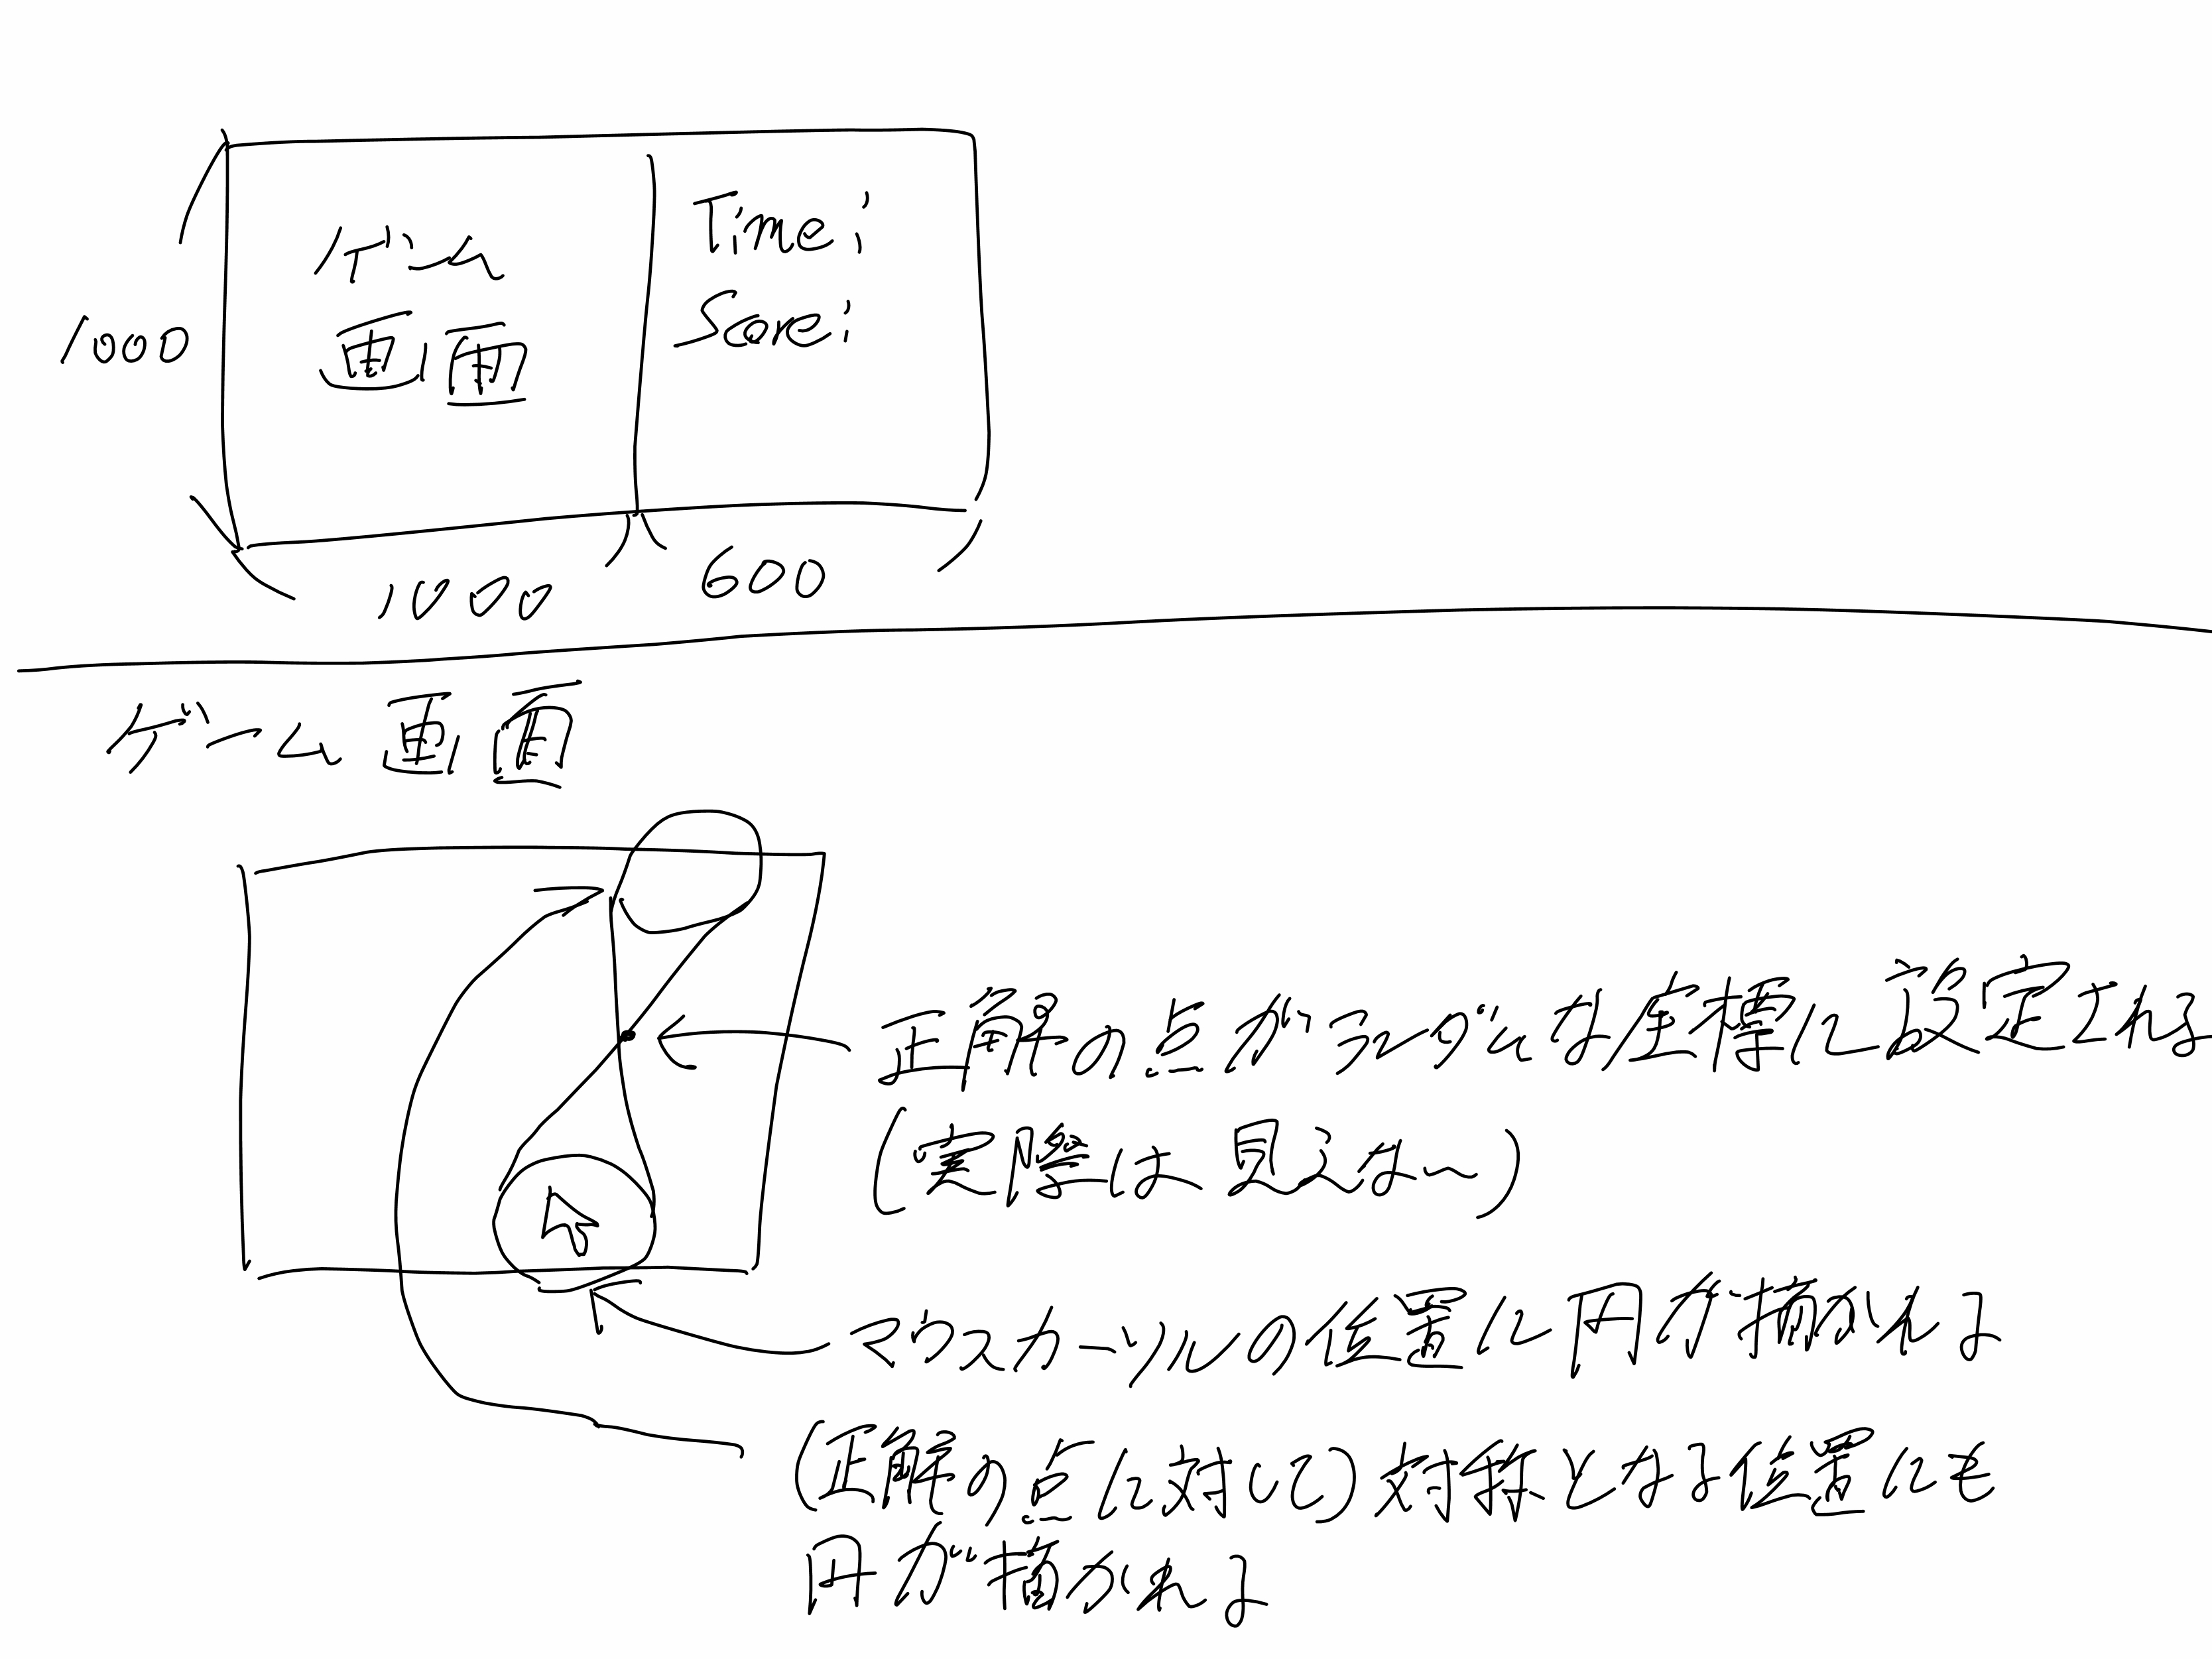 ゲーム
画面
Time:
Score:
1000
1000
600
ゲーム画面
正解の点がランダムな座標に設定される
(実際は見えない)
マウスカーソルの位置に円が描かれる
(正解の点に対して)対称となる位置にも
円が描かれる